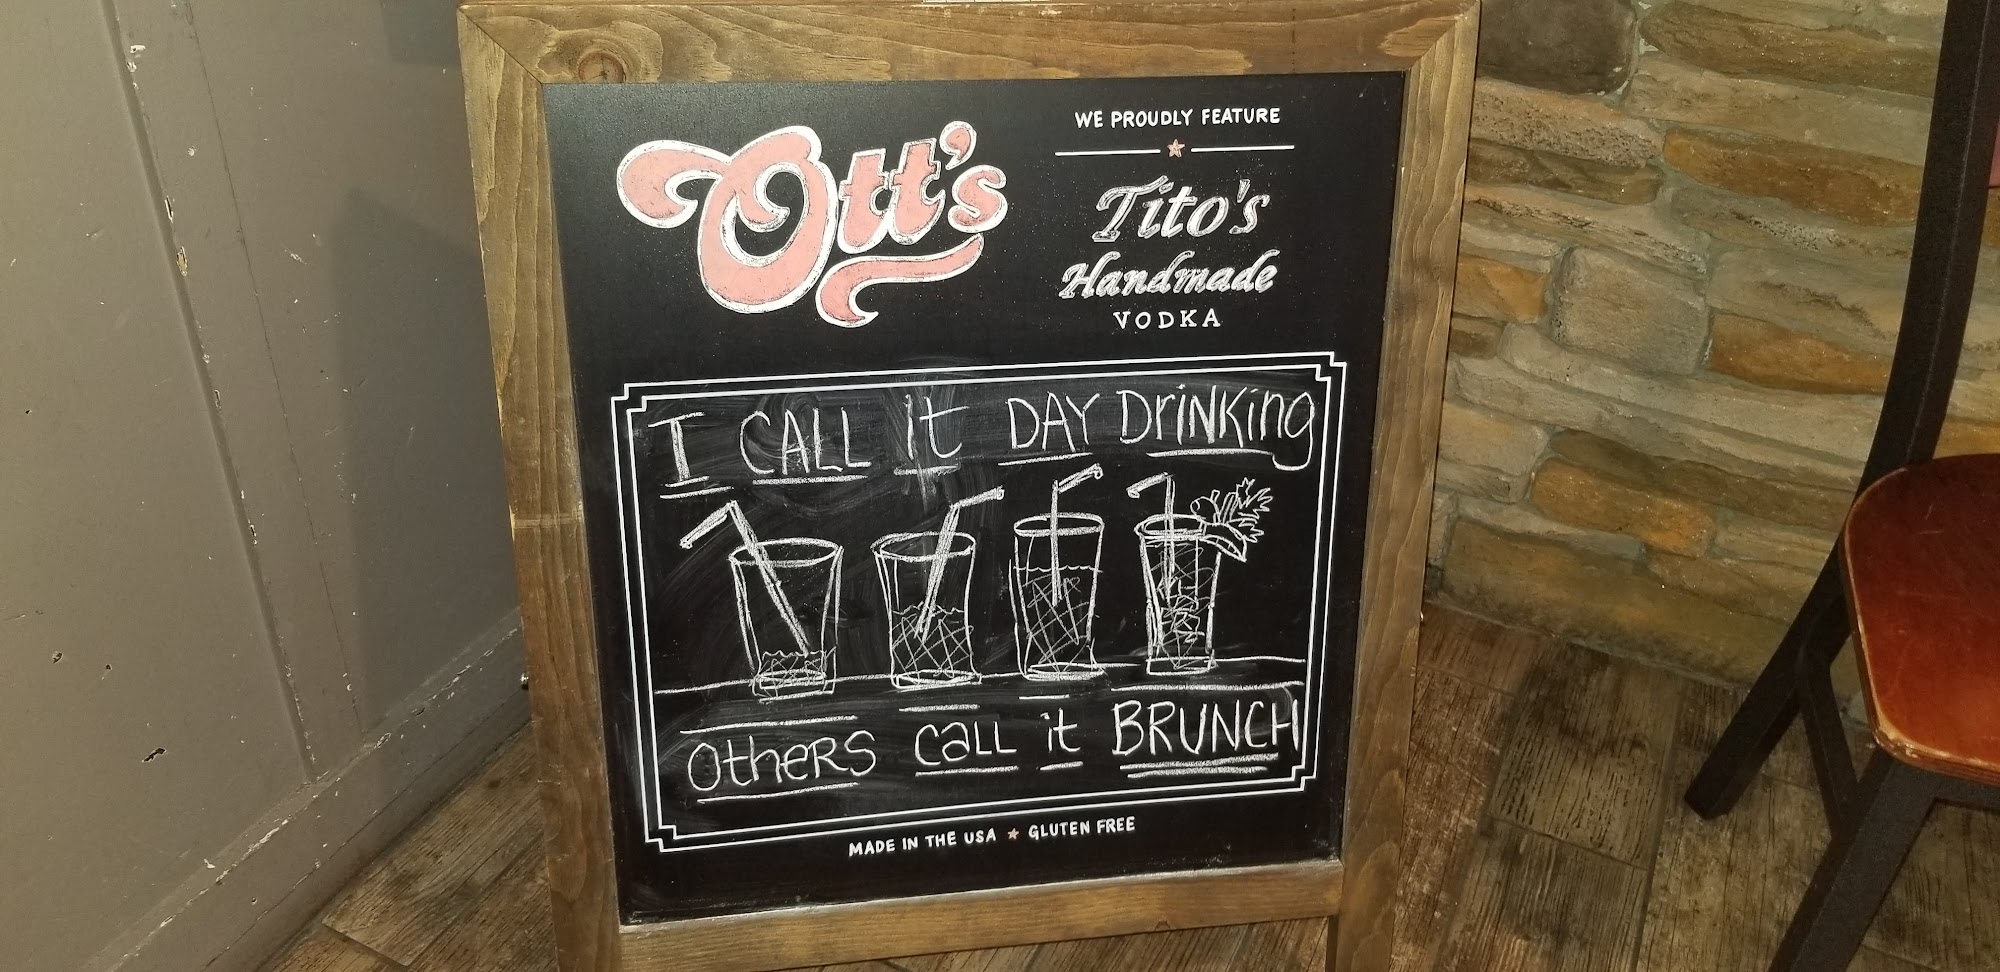 Ott's
WE PROUDLY FEATURE
Tito's
Handmade
VODKA
I CALL It DAY DriNKing
OtheRS CaLL it BRUNCH
MADE IN THE USA ★ GLUTEN FREE